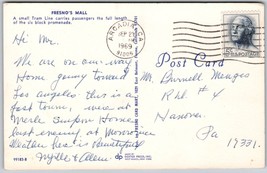 FRESNO'S MALL
A small Tram Line carries passengers the full length
of the six block promenade.
ARCADIA, CA
SEP 27
1969
91006
Hi Mr.
We are on our way
Home going toward
Los Angeles this is a
fast town, were at
Merle Simpson Home
last evening at Monrovia
Weather here is beautiful
Myrtle & Allen
Post Card
Mr. Burnell Menges
Rd. # 4
Hanover,
Pa
17331.